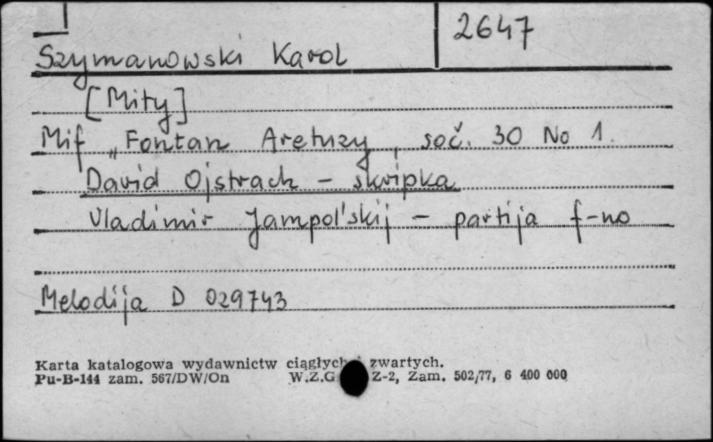 2647
Szymanowski Karol
[Mity]
Mif „Fontan Aretuzy, soč. 30 No 1.
David Ojstrach - skripka
Vladimir Jampol'skij - partija f-no
Melodija D 029743
Karta katalogowa wydawnictw ciągłych i zwartych.
Pu-B-144 zam. 567/DW/On W.Z.G Z-2, Zam. 502/77, 6 400 000